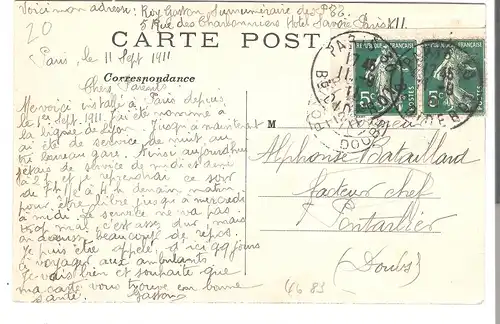 Voici mon adresse: Roy Gaston Surnuméraire des PTT.
5 Rue des Charbonniers Hotel Savoie Paris XII.
20
CARTE POSTALE
Paris, le 11 Sept 1911
Correspondance
Chers Parents
Me voici installé à Paris depuis
le 1er Sept. 1911. J'ai été nommé à
la ligne de Lyon. Jusqu'à maintenant
ai été de service de nuit au
bureau gare. Ainsi aujourd'hui
j'étais de service de midi et demie
à 2 h et je reprendrai ce soir
de à 4 h demain matin
pour être libre jusqu'à mercredi
à midi. Le service ne va pas
trop mal, c'est assez dur, mais
on a aussi beaucoup de repos.
Je puis être appelé d'ici qq jours
à voyager aux ambulants
Je vais bien et souhaite que
ma carte vous trouve en bonne
santé. Gaston
M
Alphonse Bataillard
facteur chef
Pontarlier
(Doubs)
REPUBLIQUE FRANÇAISE
5c POSTES
REPUBLIQUE FRANÇAISE
5c POSTES
DOUBS